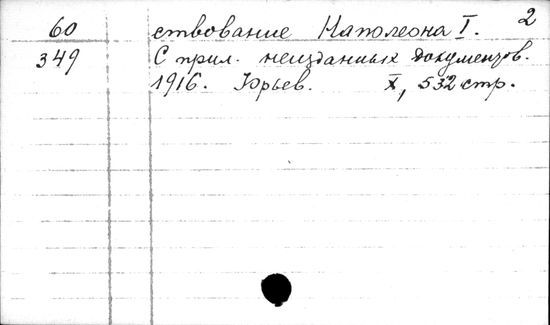 2
60 ствование Наполеона I.
349 С прил. неизданных документов.
1916. Юрьев. X, 532 стр.